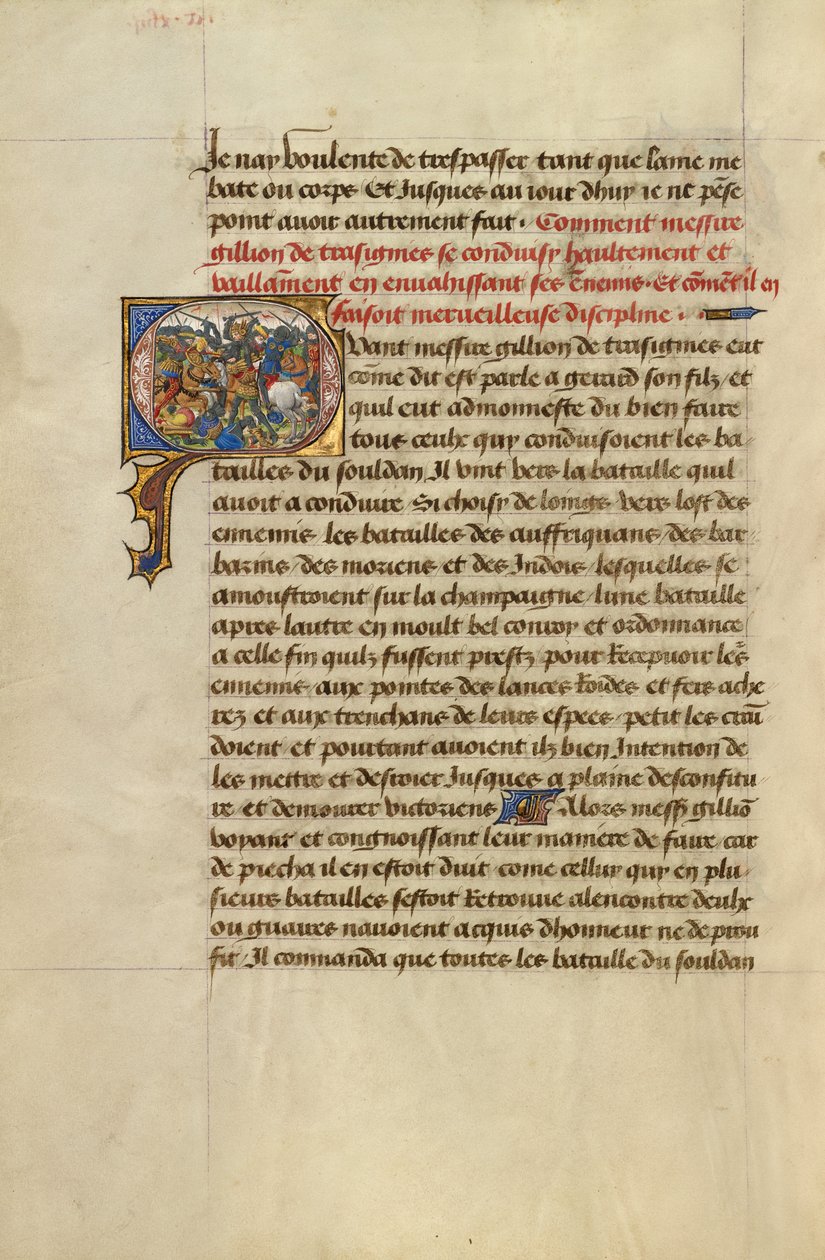 Je nay voulente de trespasser tant que lame me
bate ou corps Et Jusques au iour dhuy ie ne pēse
point auoir autrement fait. Comment messire
gillion de trasignies se conduisy haultement et
vaillāment en enuahissant ses ēnemis. Et cōmēt il en
faisoit merueilleuse discipline.
Quant messire gillion de trasignies eut
cōme dit est parle a gerard son filz / et
quil eut admonneste du bien faire
tous ceulx quy conduisoient les ba
tailles du souldan Il vint vers la bataille quil
auoit a conduire / Si choisy de loingz vers lost des
ennemis les batailles des auffriquans / des bar
barins / des moriens et des Indois / lesquelles se
amoustroient sur la champaigne / lune bataille
apres lautre en moult bel conroy et ordonnance
a celle fin quilz fussent prestz pour Recepuoir les
ennemis aux pointes des lances Roides et fers ache
rez et aux trenchans de leurs espees / petit les crau
doient et pourtant auoient ilz bien Intention de
les mettre et destoier Jusques a plaine desconfitu
re et demourer victoriens Alors messr̄ gilliō
voyant et congnoissant leur maniere de faire car
de piecha il en estoit duit come celluy quy en plu
sieurs batailles sestoit Retrouue alencontre deulx
ou guaires nauoient acquis dhonneur ne de prou
fit / Il commanda que toutes les bataille du souldan